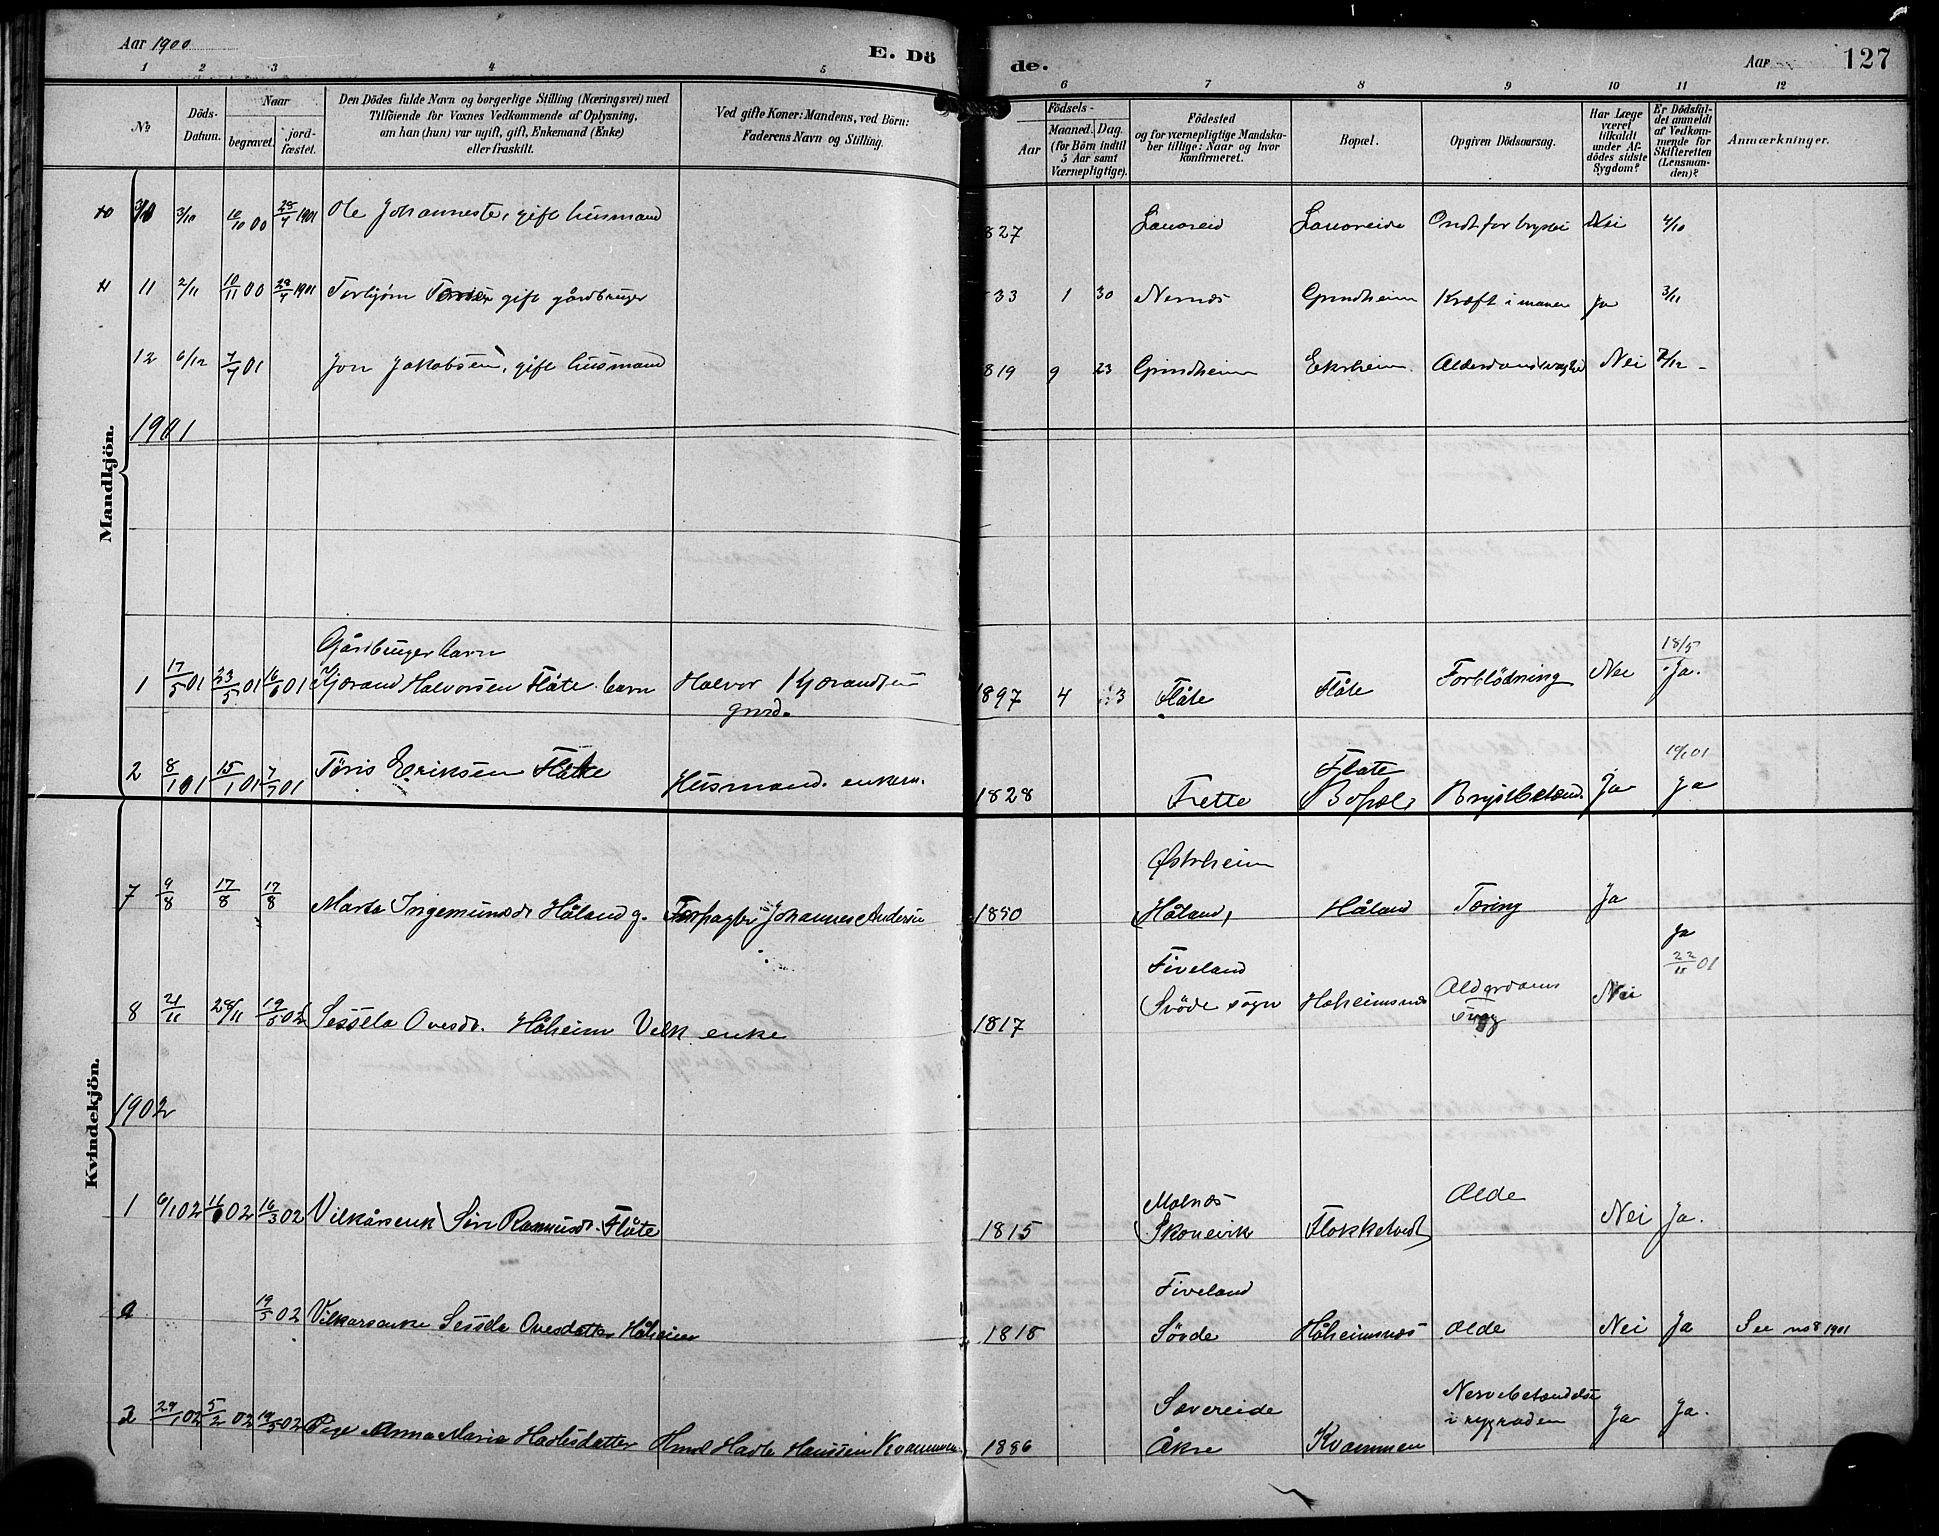 Aar 1900
E. Dö
de.
Aar
127
1 2 3 4 5 6 7 8 9 10 11 12
No
Döds-
Datum.
Naar
begravet.
jord-
fæstet.
Den Dödes fulde Navn og borgerlige Stilling (Næringsvei) med
Tilföiende for Voxnes Vedkommende af Oplysning,
om han (hun) var ugift, gift, Enkemand (Enke)
eller fraskilt.
Ved gifte Koner: Mandens, ved Börn:
Faderens Navn og Stilling.
Födsels-
Aar
Maaned. Dag.
(for Börn indtil
5 Aar samt
Værnepligtige).
Födested
og for værnepligtige Mandska-
ber tillige: Naar og hvor
konfirmeret.
Bopæl.
Opgiven Dödsaarsag.
Har Læge
været
tilkaldt
under Af-
dödes sidste
Sygdom?
Er Dödsfal-
det anmeldt
af Vedkom-
mende for
Skifteretten
(Lensman-
den)?
Anmærkninger.
Mandkjön.
10 3/10 10/10 00 25/4 1901 Ole Johanneste, gift husmand 827 Ondt for brystet Nei 4/10
11 2/11 10/11 00 29/4 1901 Torbjörn gift gårdbruger 33 1 30 Nernes Grindheim Kræft i maven Ja 3/11
12 6/12 7/7 01 Jon Jakobsen, gift husmand 819 9 23 Grindheim Ekrheim Nei 7/12
1901
Gårdbruger barn
18/5
1 17/5 01 23/5 01 16/6 01 Kjærand Halvorsen Flåte barn Halvor Kjærandsen 1897 4 3 Flåte Flåte Forblödning Nei Ja.
2 8/1 01 15/1 01 7/7 01 Töris Eriksen Flåte Husmand. enkem. 1828 Frette Flåte Bopæl Brystbetænd. Ja 10/1 01 Ja
Kvindekjön.
Østrheim
7 9/8 17/8 17/8 Marta Ingemundsdt Håland g. Forpagter Johannes Andersen 1850 Håland, Håland Tæring Ja
Ja
Fiveland 22/11 01
8 21/11 28/11 19/5 02 Sessela Ovesdt. Håheim Vilk enke 1817 Svöde sogn Håheimsnes Alderdoms svag Nei
1902
Molnes
1 6/1 02 16/1 02 16/3 02 Vilkårsenk Siri Rasmusdt. Flåte 1815 Skonevik Flokketvedt Ælde Nei Ja.
Fiveland
2 19/5 02 Vilkårsenke Sessela Ovesdatter Håheim 1818 Sövde Håheimsnes Ælde Nei Ja See no 8 1901
Sævereide Nervebetændelse
i rygraden
2 29/1 02 5/2 02 19/5 02 Pige Anna Maria Havlesdatter Husm Havle Hanssen Kvammen 1886 Åkre Kvammen Ja Ja.